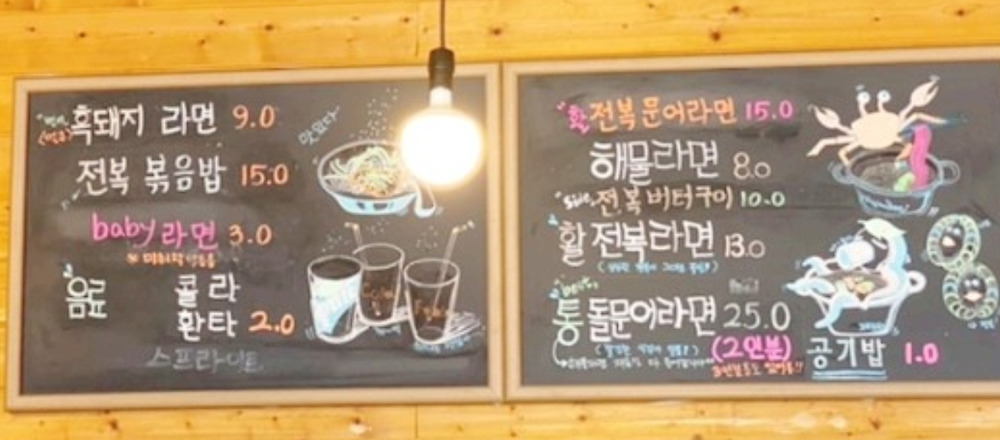 흑돼지 라면 9.0
맛있다
전복 볶음밥 15.0
baby 라면 3.0
음료
콜라
환타 2.0
스프라이트
활 전복문어라면 15.0
해물라면 8.0
전복버터구이 10.0
활 전복라면 13.0
best
통 돌문어라면 25.0
(2인분)
공기밥 1.0